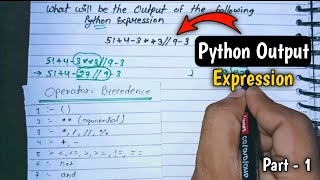 What will be the Output of the following
Python Expression
51+4-3**3//9-3
51+4-3**3//9-3
→ 51+4-27//9-3
Operator Precedence
1 :- ()
2 :- ** (exponential)
3 :- *, /, //, %
4 :- + -
5 :- <, <=, >, >=, !=, ==
6 :- not
7 :- and
Python Output
Expression
Part - 1